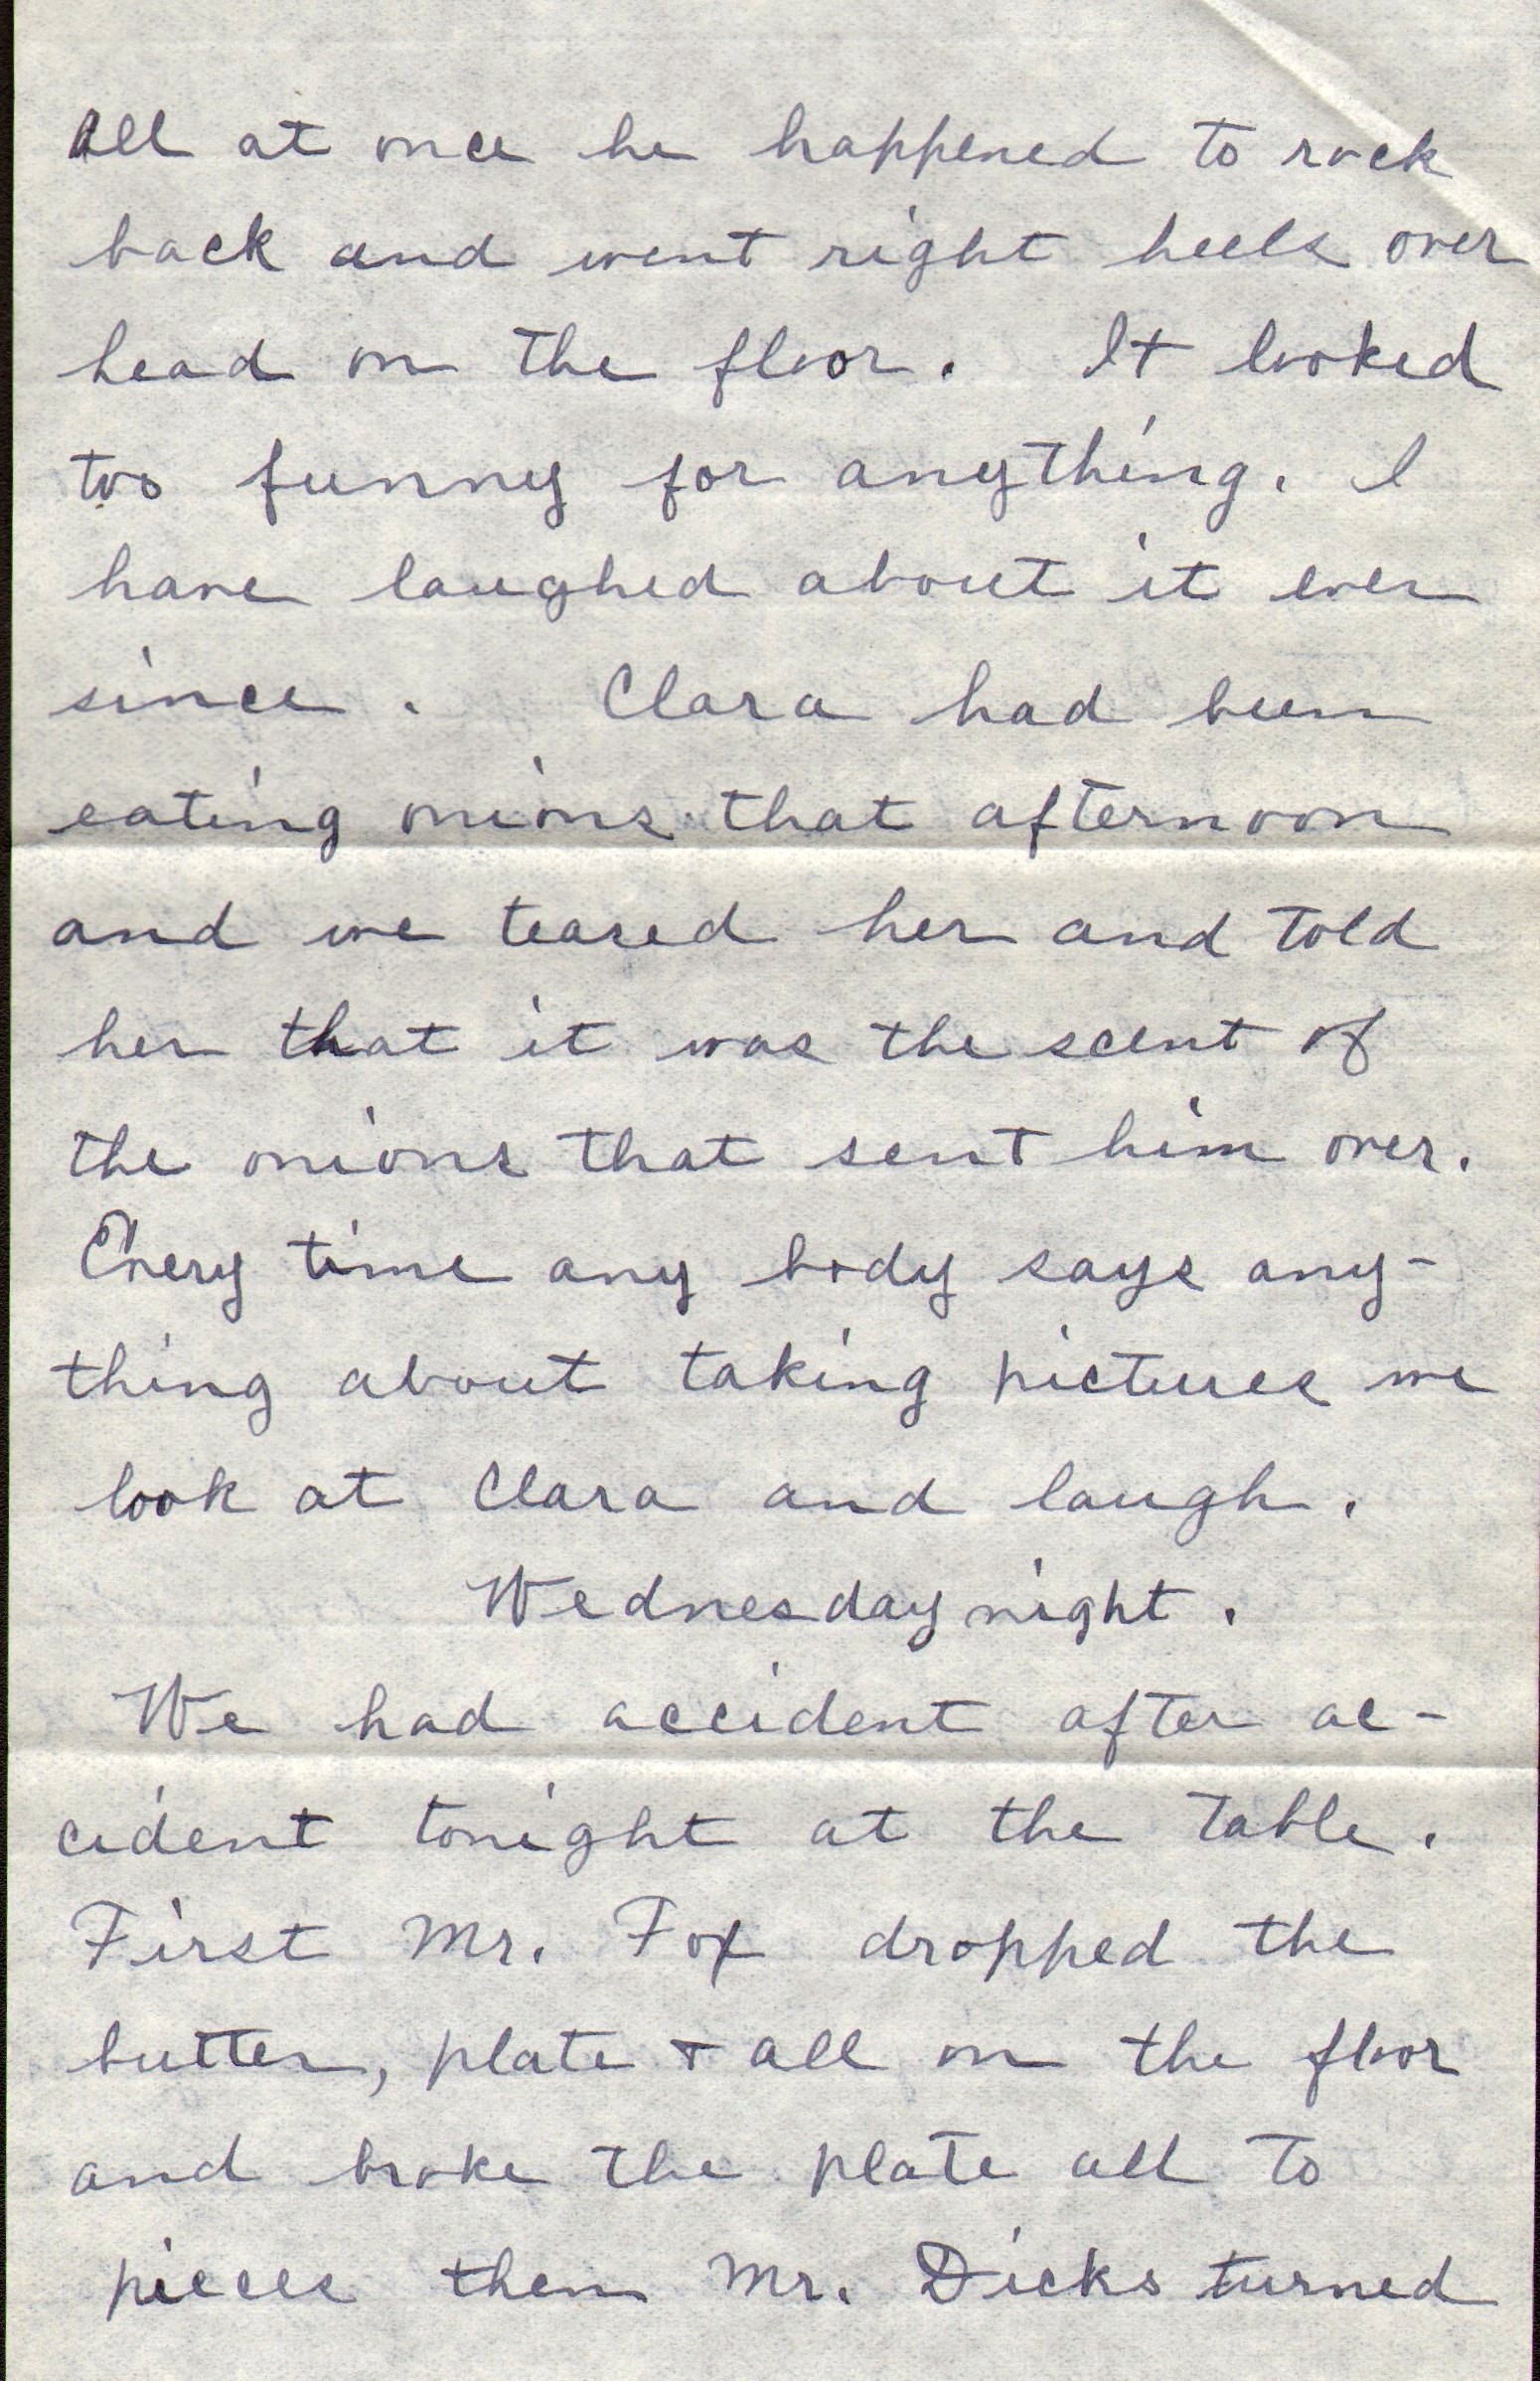 All at once he happened to rock
back and went right heels over
head on the floor. It looked
too funny for anything. I
have laughed about it ever
since. Clara had been
eating onions that afternoon
and we teased her and told
her that it was the scent of
the onions that sent him over.
Every time any body says any-
thing about taking pictures we
look at Clara and laugh.
Wednesday night.
We had accident after ac-
cident tonight at the table.
First Mr. Fox dropped the
butter, plate + all on the floor
and broke the plate all to
pieces then Mr. Dicks turned